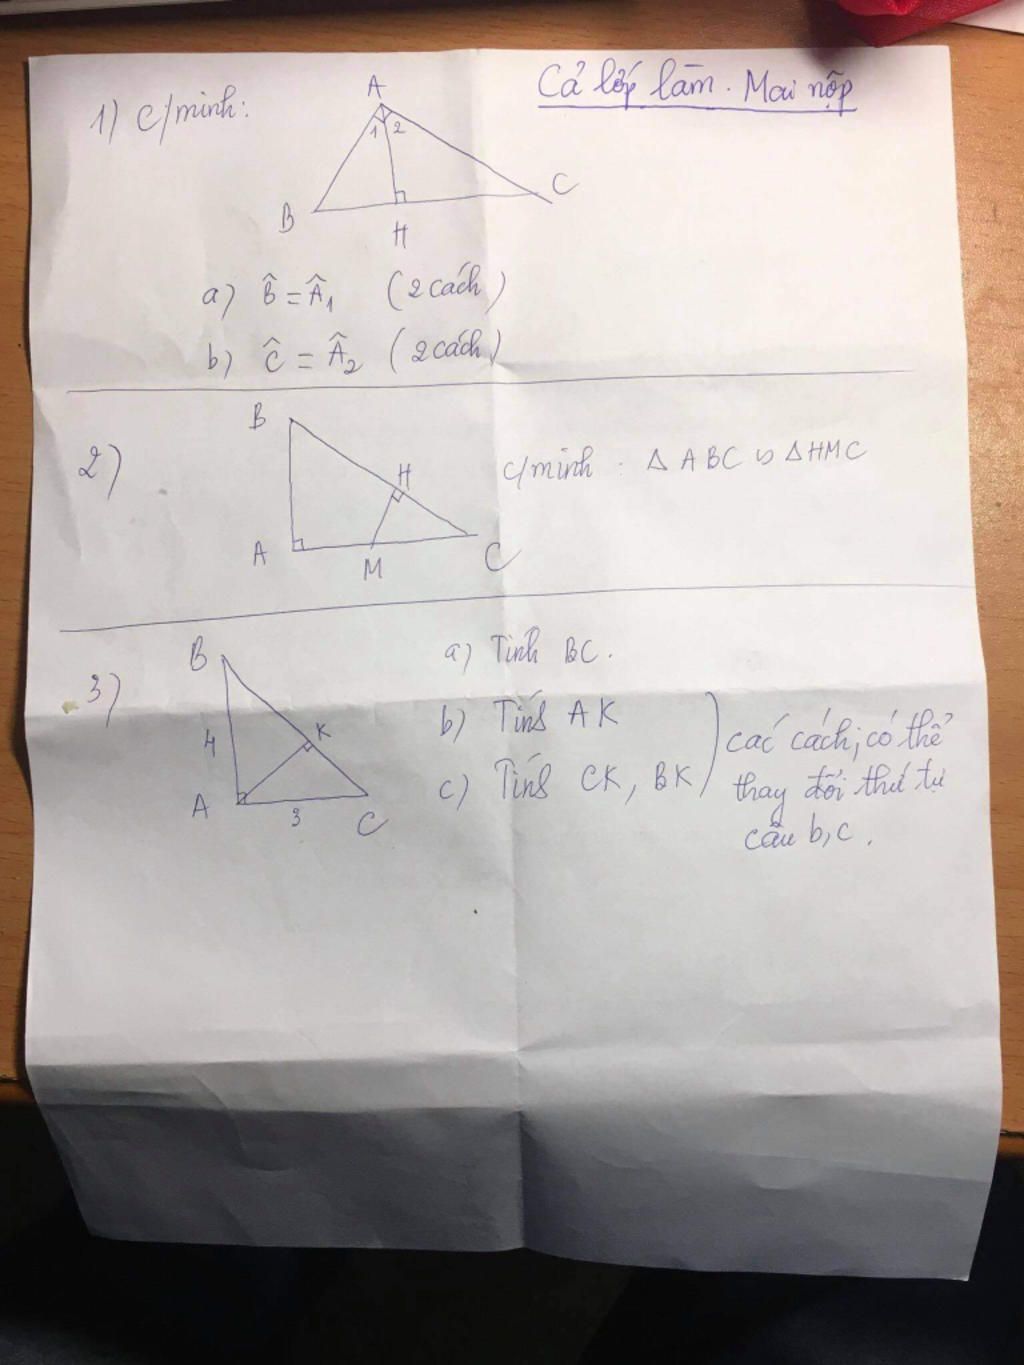 Cả lớp làm. Mai nộp
1) C/minh:
A
1 2
B
H
C
a) B̂ = Â1 (2 cách)
b) Ĉ = Â2 (2 cách)
2)
B
H
A
M
C
C/minh: Δ ABC ᔕ Δ HMC
3)
B
4
K
A
3
C
a) Tính BC.
b) Tính AK
c) Tính CK, BK
các cách, có thể
thay đổi thứ tự
câu b, c.